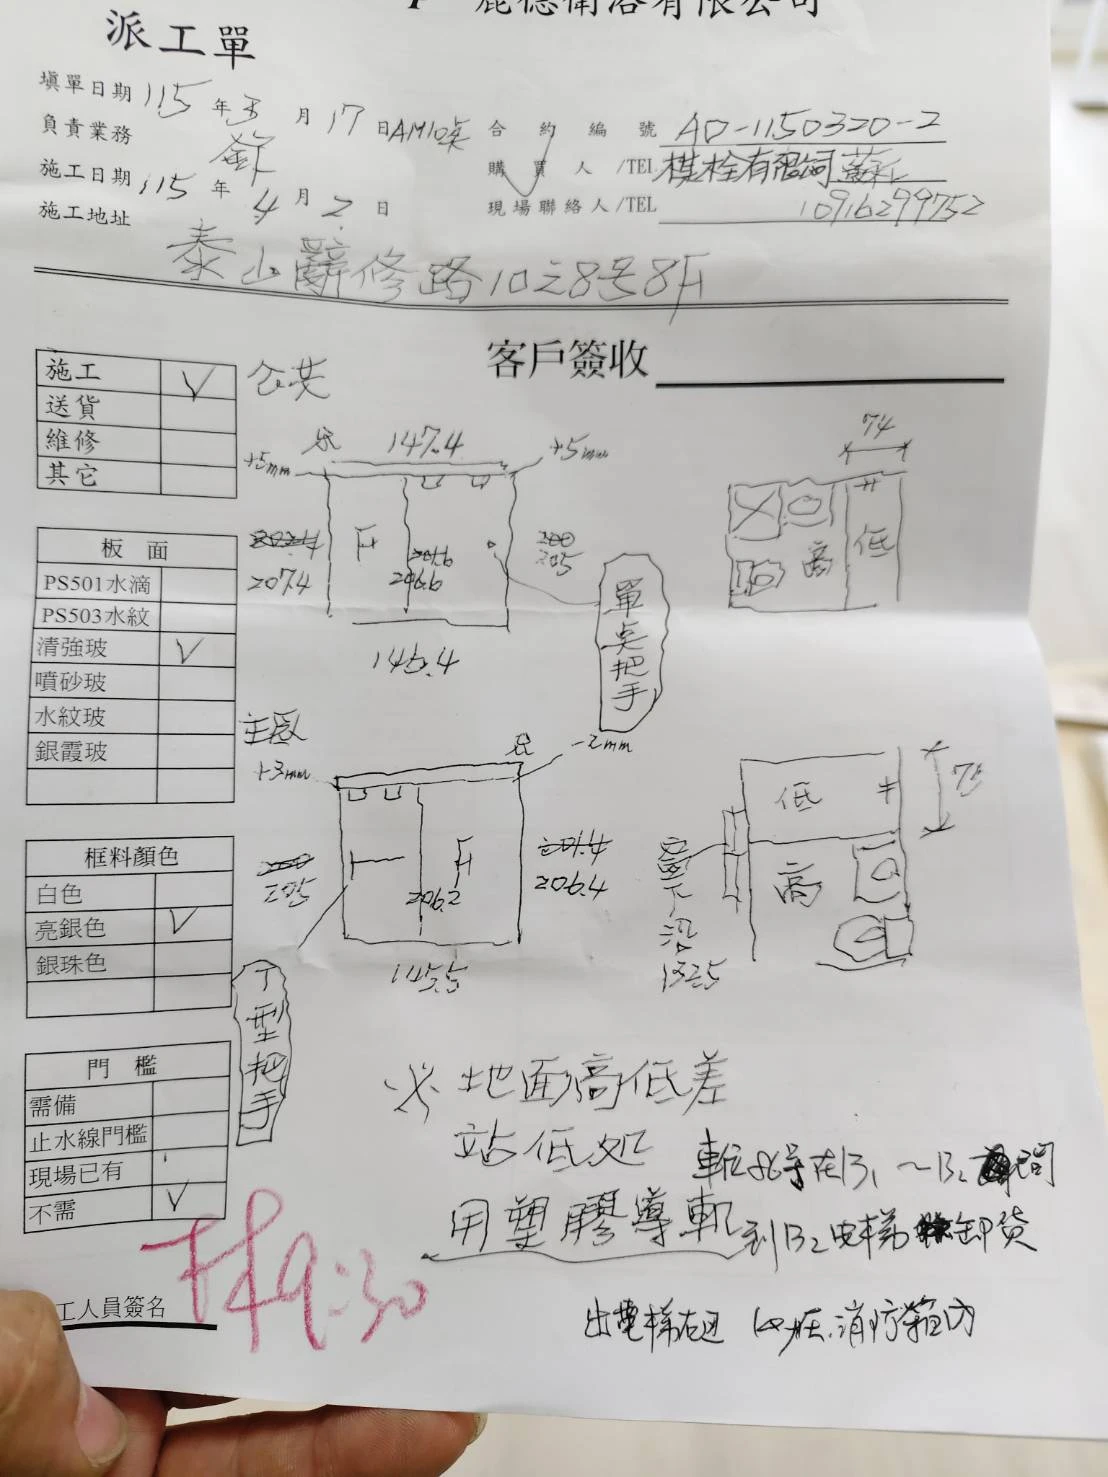 麗德衛浴有限公司
派工單
填單日期 115年3月17日AM10點
負責業務
施工日期 115年4月2日
施工地址
合約編號 AD-1150320-2
購買人/TEL 棋栓有限公司 蘇R
現場聯絡人/TEL 0916299752
泰山辭修路10之8号8F
客戶簽收
施工 V
送貨
維修
其它
公共
+5mm
147.4
+5mm
207.4
206.6
200
205
146.4
單点把手
74
高
低
板面
PS501水滴
PS503水紋
清強玻 V
噴砂玻
水紋玻
銀霞玻
主臥
+3mm
-2mm
205
206.2
201.4
206.4
145.5
丁型把手
低
75
高
窗下沿
132.5
框料顏色
白色
亮銀色 V
銀珠色
門檻
需備
止水線門檻
現場已有
不需 V
※地面高低差
站低処
用塑膠導軌
車位
到B2电梯 卸货
消防箱内
9:30
工人員簽名